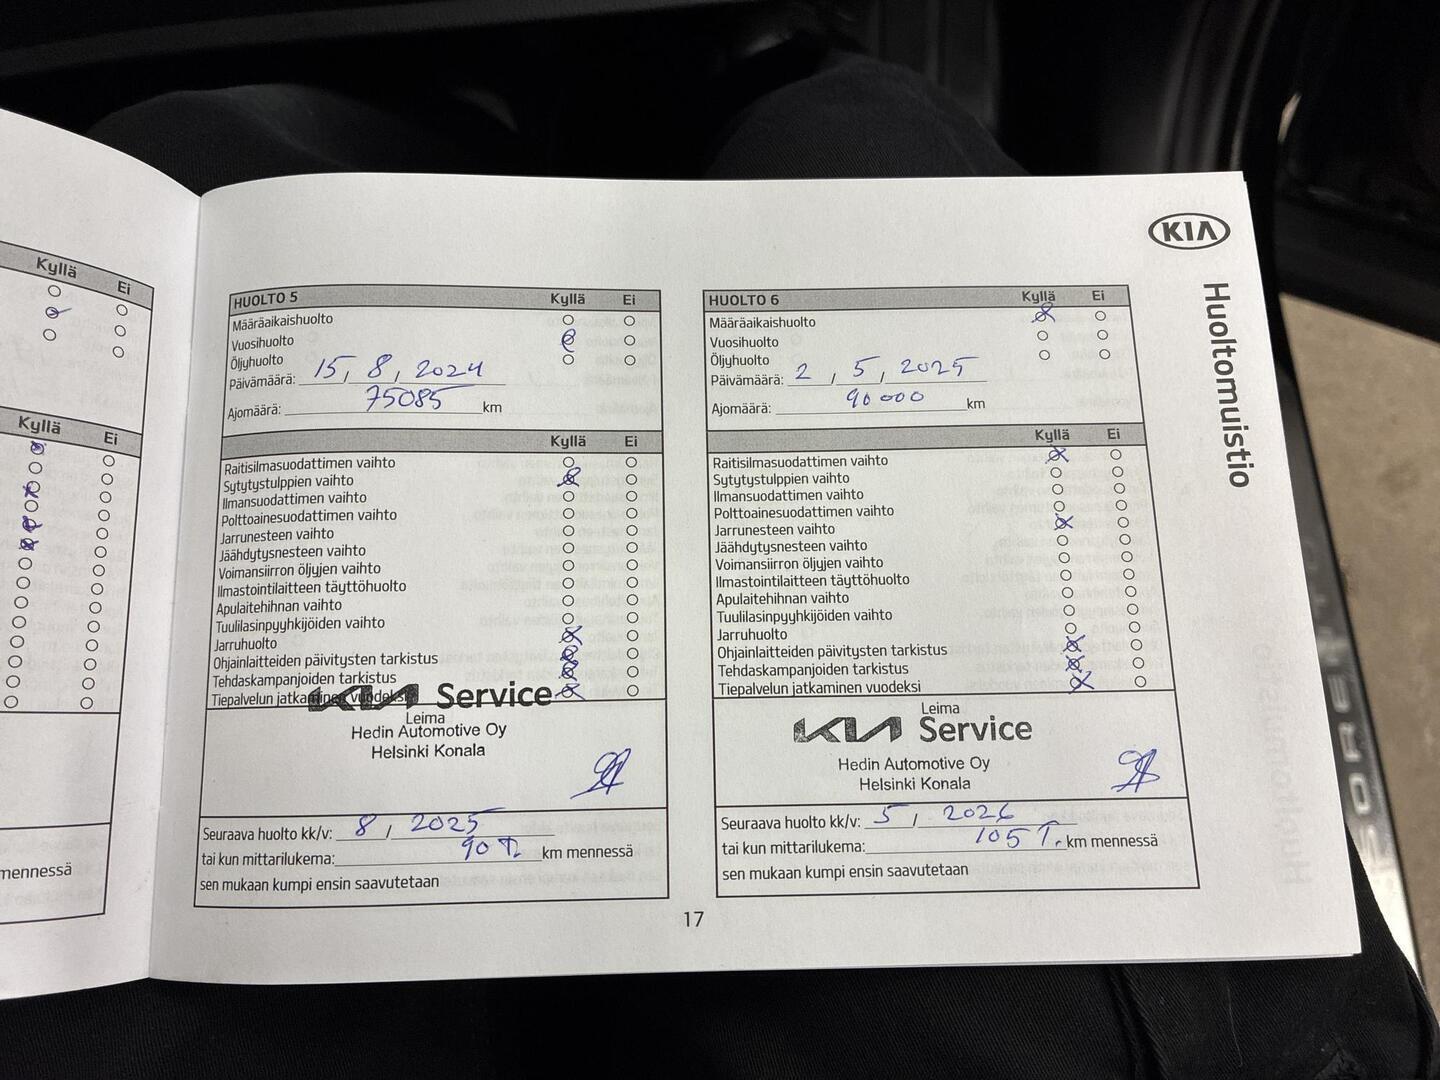 Kyllä Ei
Kyllä Ei
mennessä
KIA
Huoltomuistio
HUOLTO 5 Kyllä Ei
Määräaikaishuolto
Vuosihuolto
Öljyhuolto
Päivämäärä: 15, 8, 2024
Ajomäärä: 75085 km
Kyllä Ei
Raitisilmasuodattimen vaihto
Sytytystulppien vaihto
Ilmansuodattimen vaihto
Polttoainesuodattimen vaihto
Jarrunesteen vaihto
Jäähdytysnesteen vaihto
Voimansiirron öljyjen vaihto
Ilmastointilaitteen täyttöhuolto
Apulaitehihnan vaihto
Tuulilasinpyyhkijöiden vaihto
Jarruhuolto
Ohjainlaitteiden päivitysten tarkistus
Tehdaskampanjoiden tarkistus
Tiepalvelun jatkaminen vuodeksi
KIA Service
Leima
Hedin Automotive Oy
Helsinki Konala
Seuraava huolto kk/v: 8, 2025
tai kun mittarilukema: 90 T. km mennessä
sen mukaan kumpi ensin saavutetaan
HUOLTO 6 Kyllä Ei
Määräaikaishuolto
Vuosihuolto
Öljyhuolto
Päivämäärä: 2, 5, 2025
Ajomäärä: 90000 km
Kyllä Ei
Raitisilmasuodattimen vaihto
Sytytystulppien vaihto
Ilmansuodattimen vaihto
Polttoainesuodattimen vaihto
Jarrunesteen vaihto
Jäähdytysnesteen vaihto
Voimansiirron öljyjen vaihto
Ilmastointilaitteen täyttöhuolto
Apulaitehihnan vaihto
Tuulilasinpyyhkijöiden vaihto
Jarruhuolto
Ohjainlaitteiden päivitysten tarkistus
Tehdaskampanjoiden tarkistus
Tiepalvelun jatkaminen vuodeksi
Leima
KIA Service
Hedin Automotive Oy
Helsinki Konala
Seuraava huolto kk/v: 5, 2026
tai kun mittarilukema: 105 T. km mennessä
sen mukaan kumpi ensin saavutetaan
17
SORENTO